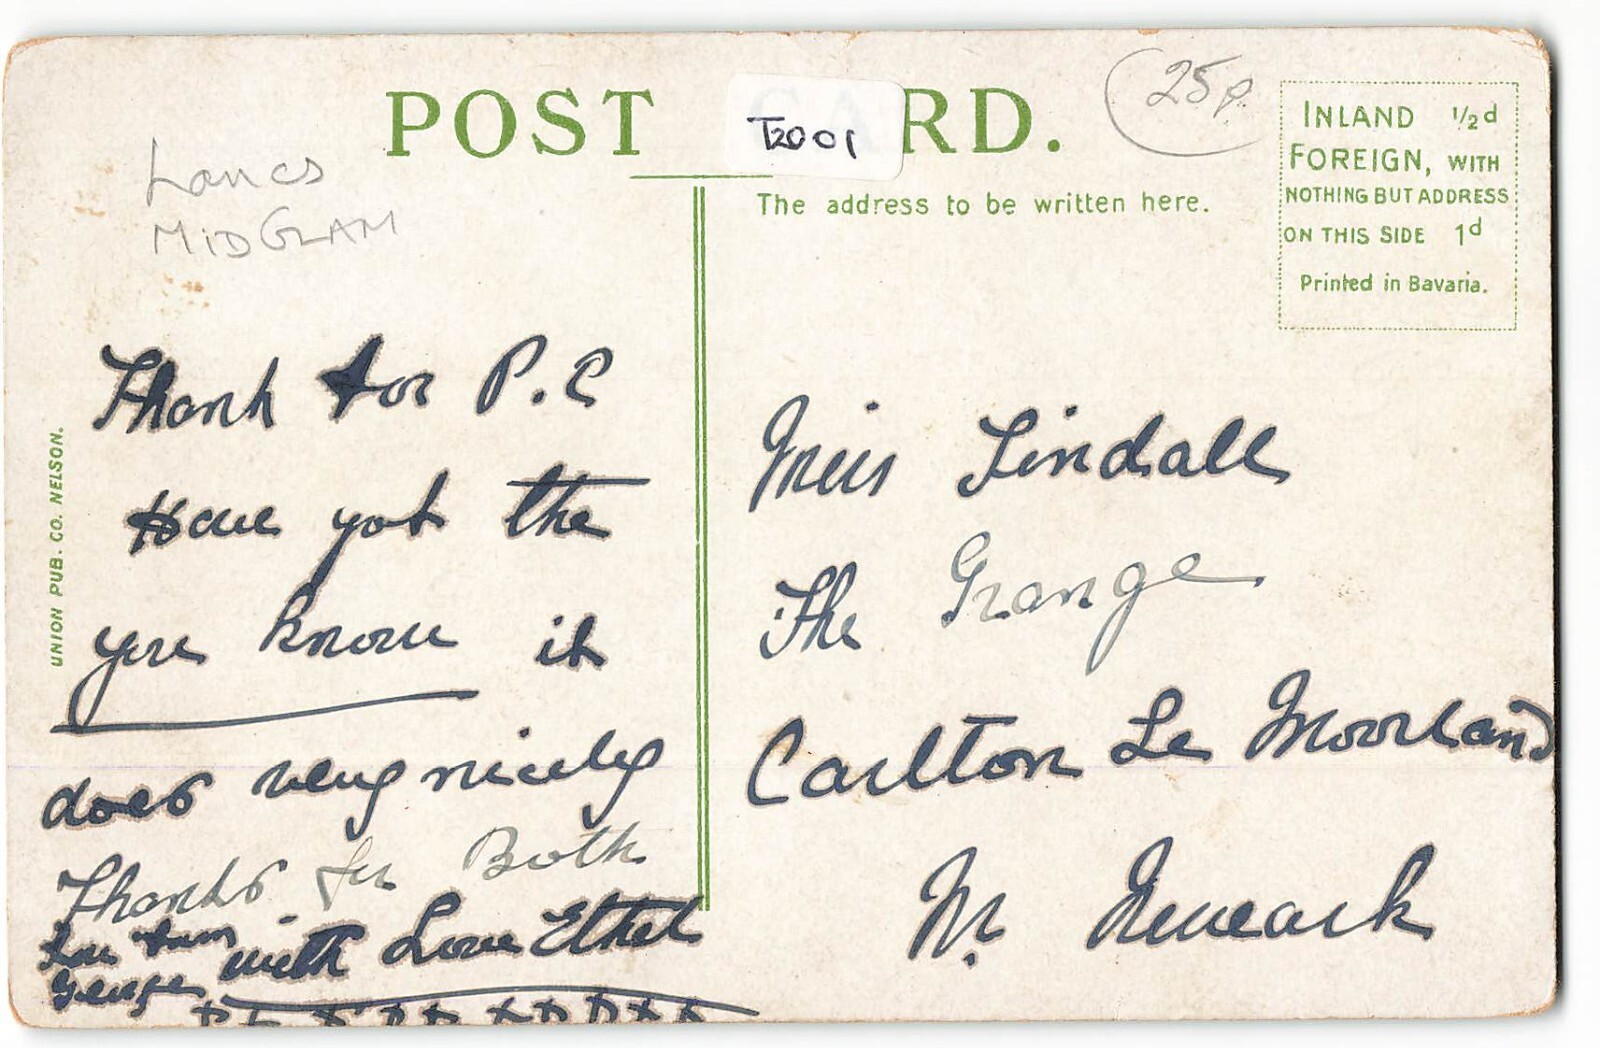 POST CARD.
T2001
25p
Lancs
MID GLAM
The address to be written here.
INLAND 1/2d
FOREIGN, WITH
NOTHING BUT ADDRESS
ON THIS SIDE 1d
Printed in Bavaria.
UNION PUB. CO. NELSON.
Thank for P.C
Have got the
you know it
does very nicely
Thanks for Both
with Love Ethel
George
Miss Lindall
The Grange
Carlton Le Moorland
Nr. Newark